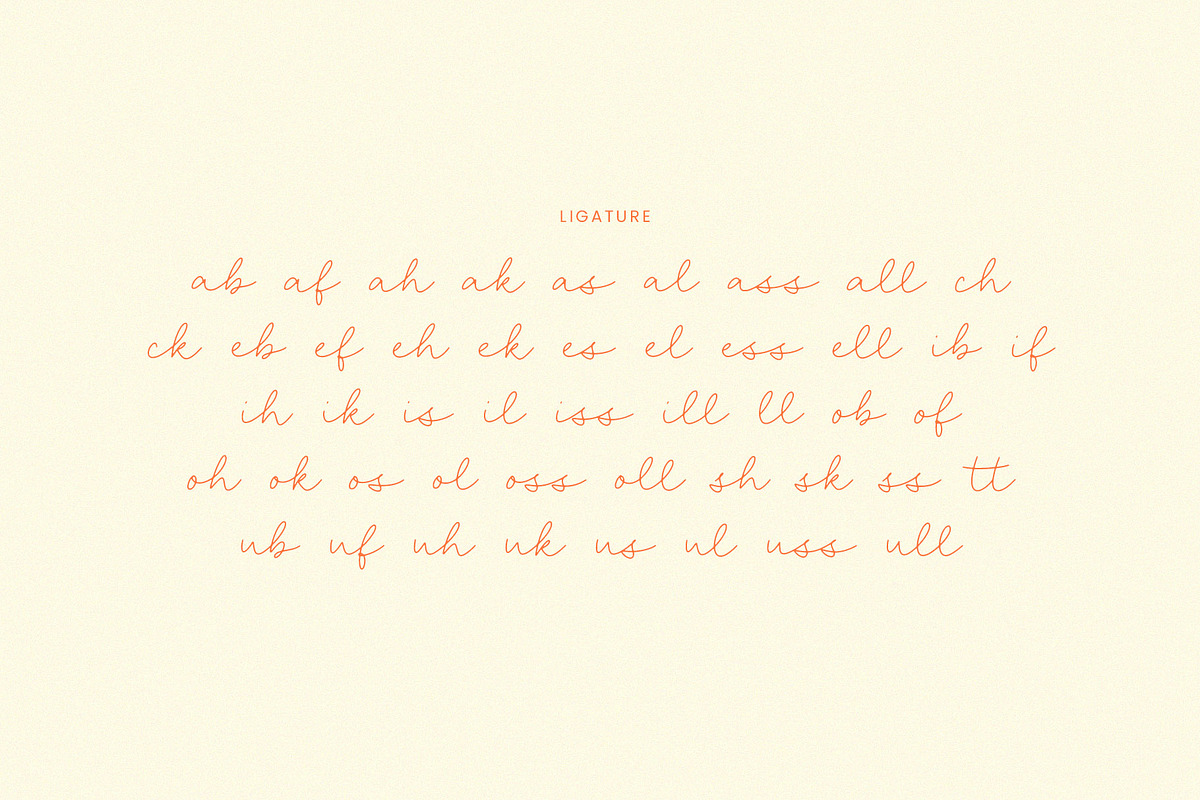 LIGATURE
ab af ah ak as al ass all ch
ck eb ef eh ek es el ess ell ib if
ih ik is il iss ill ll ob of
oh ok os ol oss oll sh sk ss tt
ub uf uh uk us ul uss ull